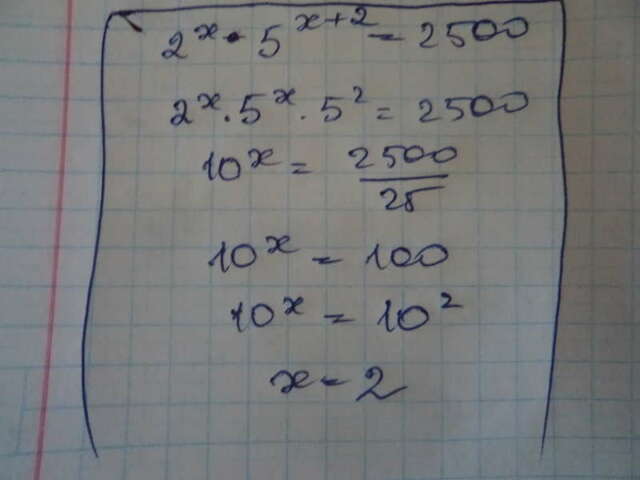 2^x · 5^{x+2} = 2500
2^x · 5^x · 5^2 = 2500
10^x = \frac{2500}{25}
10^x = 100
10^x = 10^2
x = 2